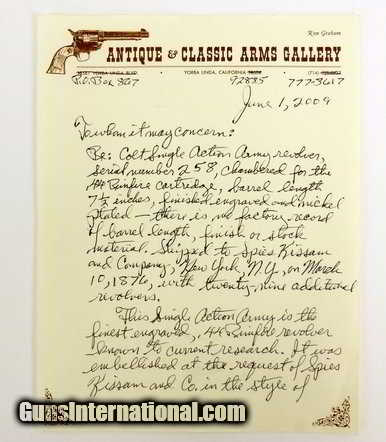 Ron Graham
ANTIQUE & CLASSIC ARMS GALLERY
YORBA LINDA BLVD.
YORBA LINDA, CALIFORNIA
(714)
P.O. Box 367
92885
777-3617
June 1, 2009
To whom it may concern:
Re: Colt Single Action Army revolver,
serial number 258, chambered for the
.44 Rimfire cartridge, barrel length
7½ inches, finished engraved and nickel
plated — there is no factory record
of barrel length, finish or stock
material. Shipped to Spies Kissam
and Company, New York, N.Y. on March
10, 1876, with twenty-nine additional
revolvers.
This Single Action Army is the
finest engraved, .44 Rimfire revolver
known to current research. It was
embellished at the request of Spies
Kissam and Co. in the style of
GunsInternational.com